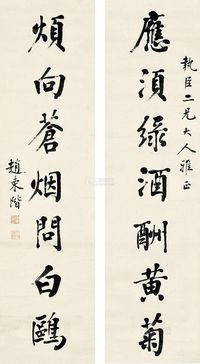 執臣二兄大人雅正
應湏緑酒酬黃菊
煩向蒼烟問白鷗
趙東階